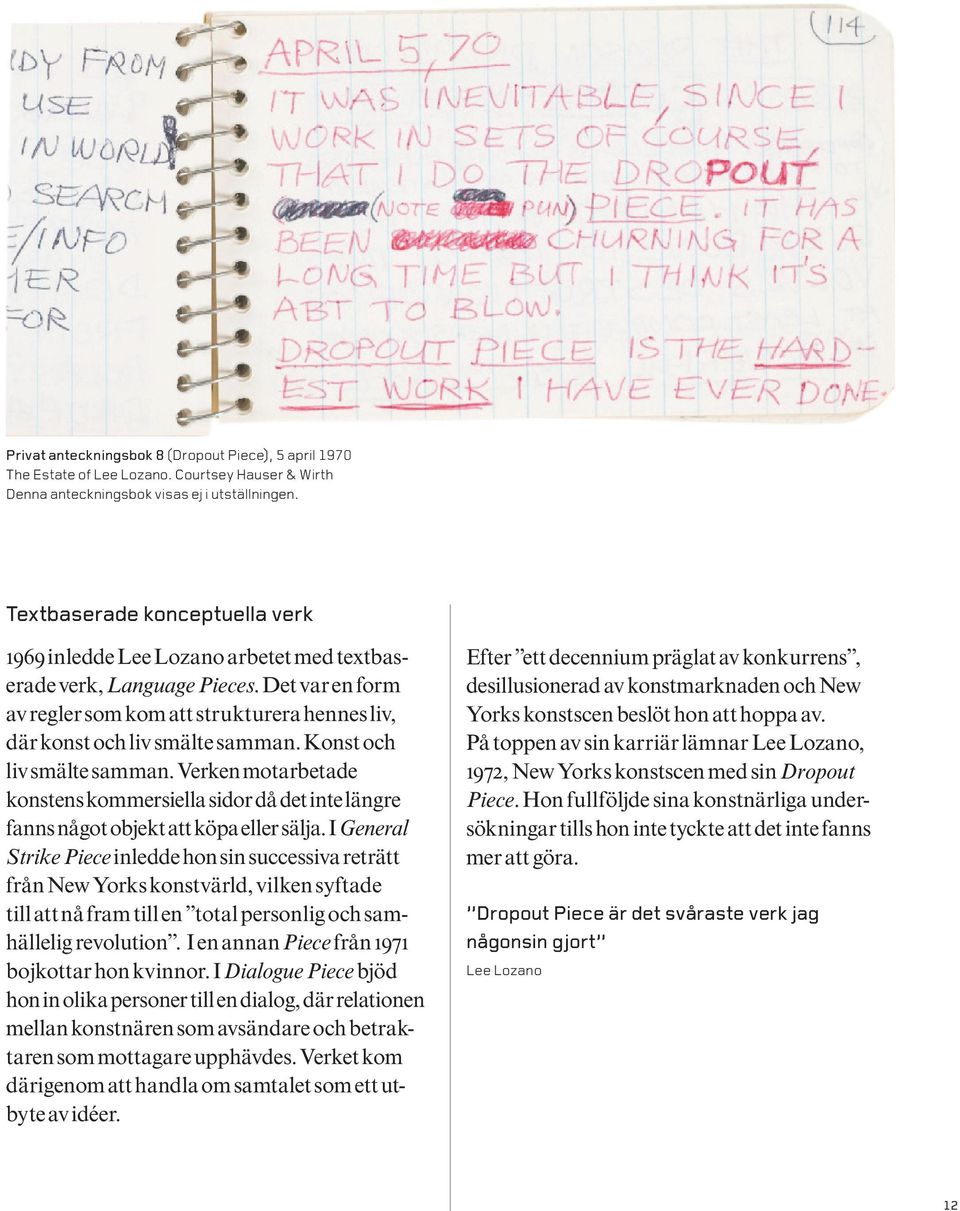 IDY FROM
USE
IN WORLD
SEARCH
E/INFO
MER
FOR
114
APRIL 5, 70
IT WAS INEVITABLE, SINCE I
WORK IN SETS OF COURSE,
THAT I DO THE DROPOUT
(NOTE PUN) PIECE. IT HAS
BEEN CHURNING FOR A
LONG TIME BUT I THINK IT'S
ABT TO BLOW.
DROPOUT PIECE IS THE HARD-
EST WORK I HAVE EVER DONE.
Privat anteckningsbok 8 (Dropout Piece), 5 april 1970
The Estate of Lee Lozano. Courtsey Hauser & Wirth
Denna anteckningsbok visas ej i utställningen.
Textbaserade konceptuella verk
1969 inledde Lee Lozano arbetet med textbas-
erade verk, Language Pieces. Det var en form
av regler som kom att strukturera hennes liv,
där konst och liv smälte samman. Konst och
liv smälte samman. Verken motarbetade
konstens kommersiella sidor då det inte längre
fanns något objekt att köpa eller sälja. I General
Strike Piece inledde hon sin successiva reträtt
från New Yorks konstvärld, vilken syftade
till att nå fram till en ”total personlig och sam-
hällelig revolution”. I en annan Piece från 1971
bojkottar hon kvinnor. I Dialogue Piece bjöd
hon in olika personer till en dialog, där relationen
mellan konstnären som avsändare och betrak-
taren som mottagare upphävdes. Verket kom
därigenom att handla om samtalet som ett ut-
byte av idéer.
Efter ”ett decennium präglat av konkurrens”,
desillusionerad av konstmarknaden och New
Yorks konstscen beslöt hon att hoppa av.
På toppen av sin karriär lämnar Lee Lozano,
1972, New Yorks konstscen med sin Dropout
Piece. Hon fullföljde sina konstnärliga under-
sökningar tills hon inte tyckte att det inte fanns
mer att göra.
”Dropout Piece är det svåraste verk jag
någonsin gjort”
Lee Lozano
12